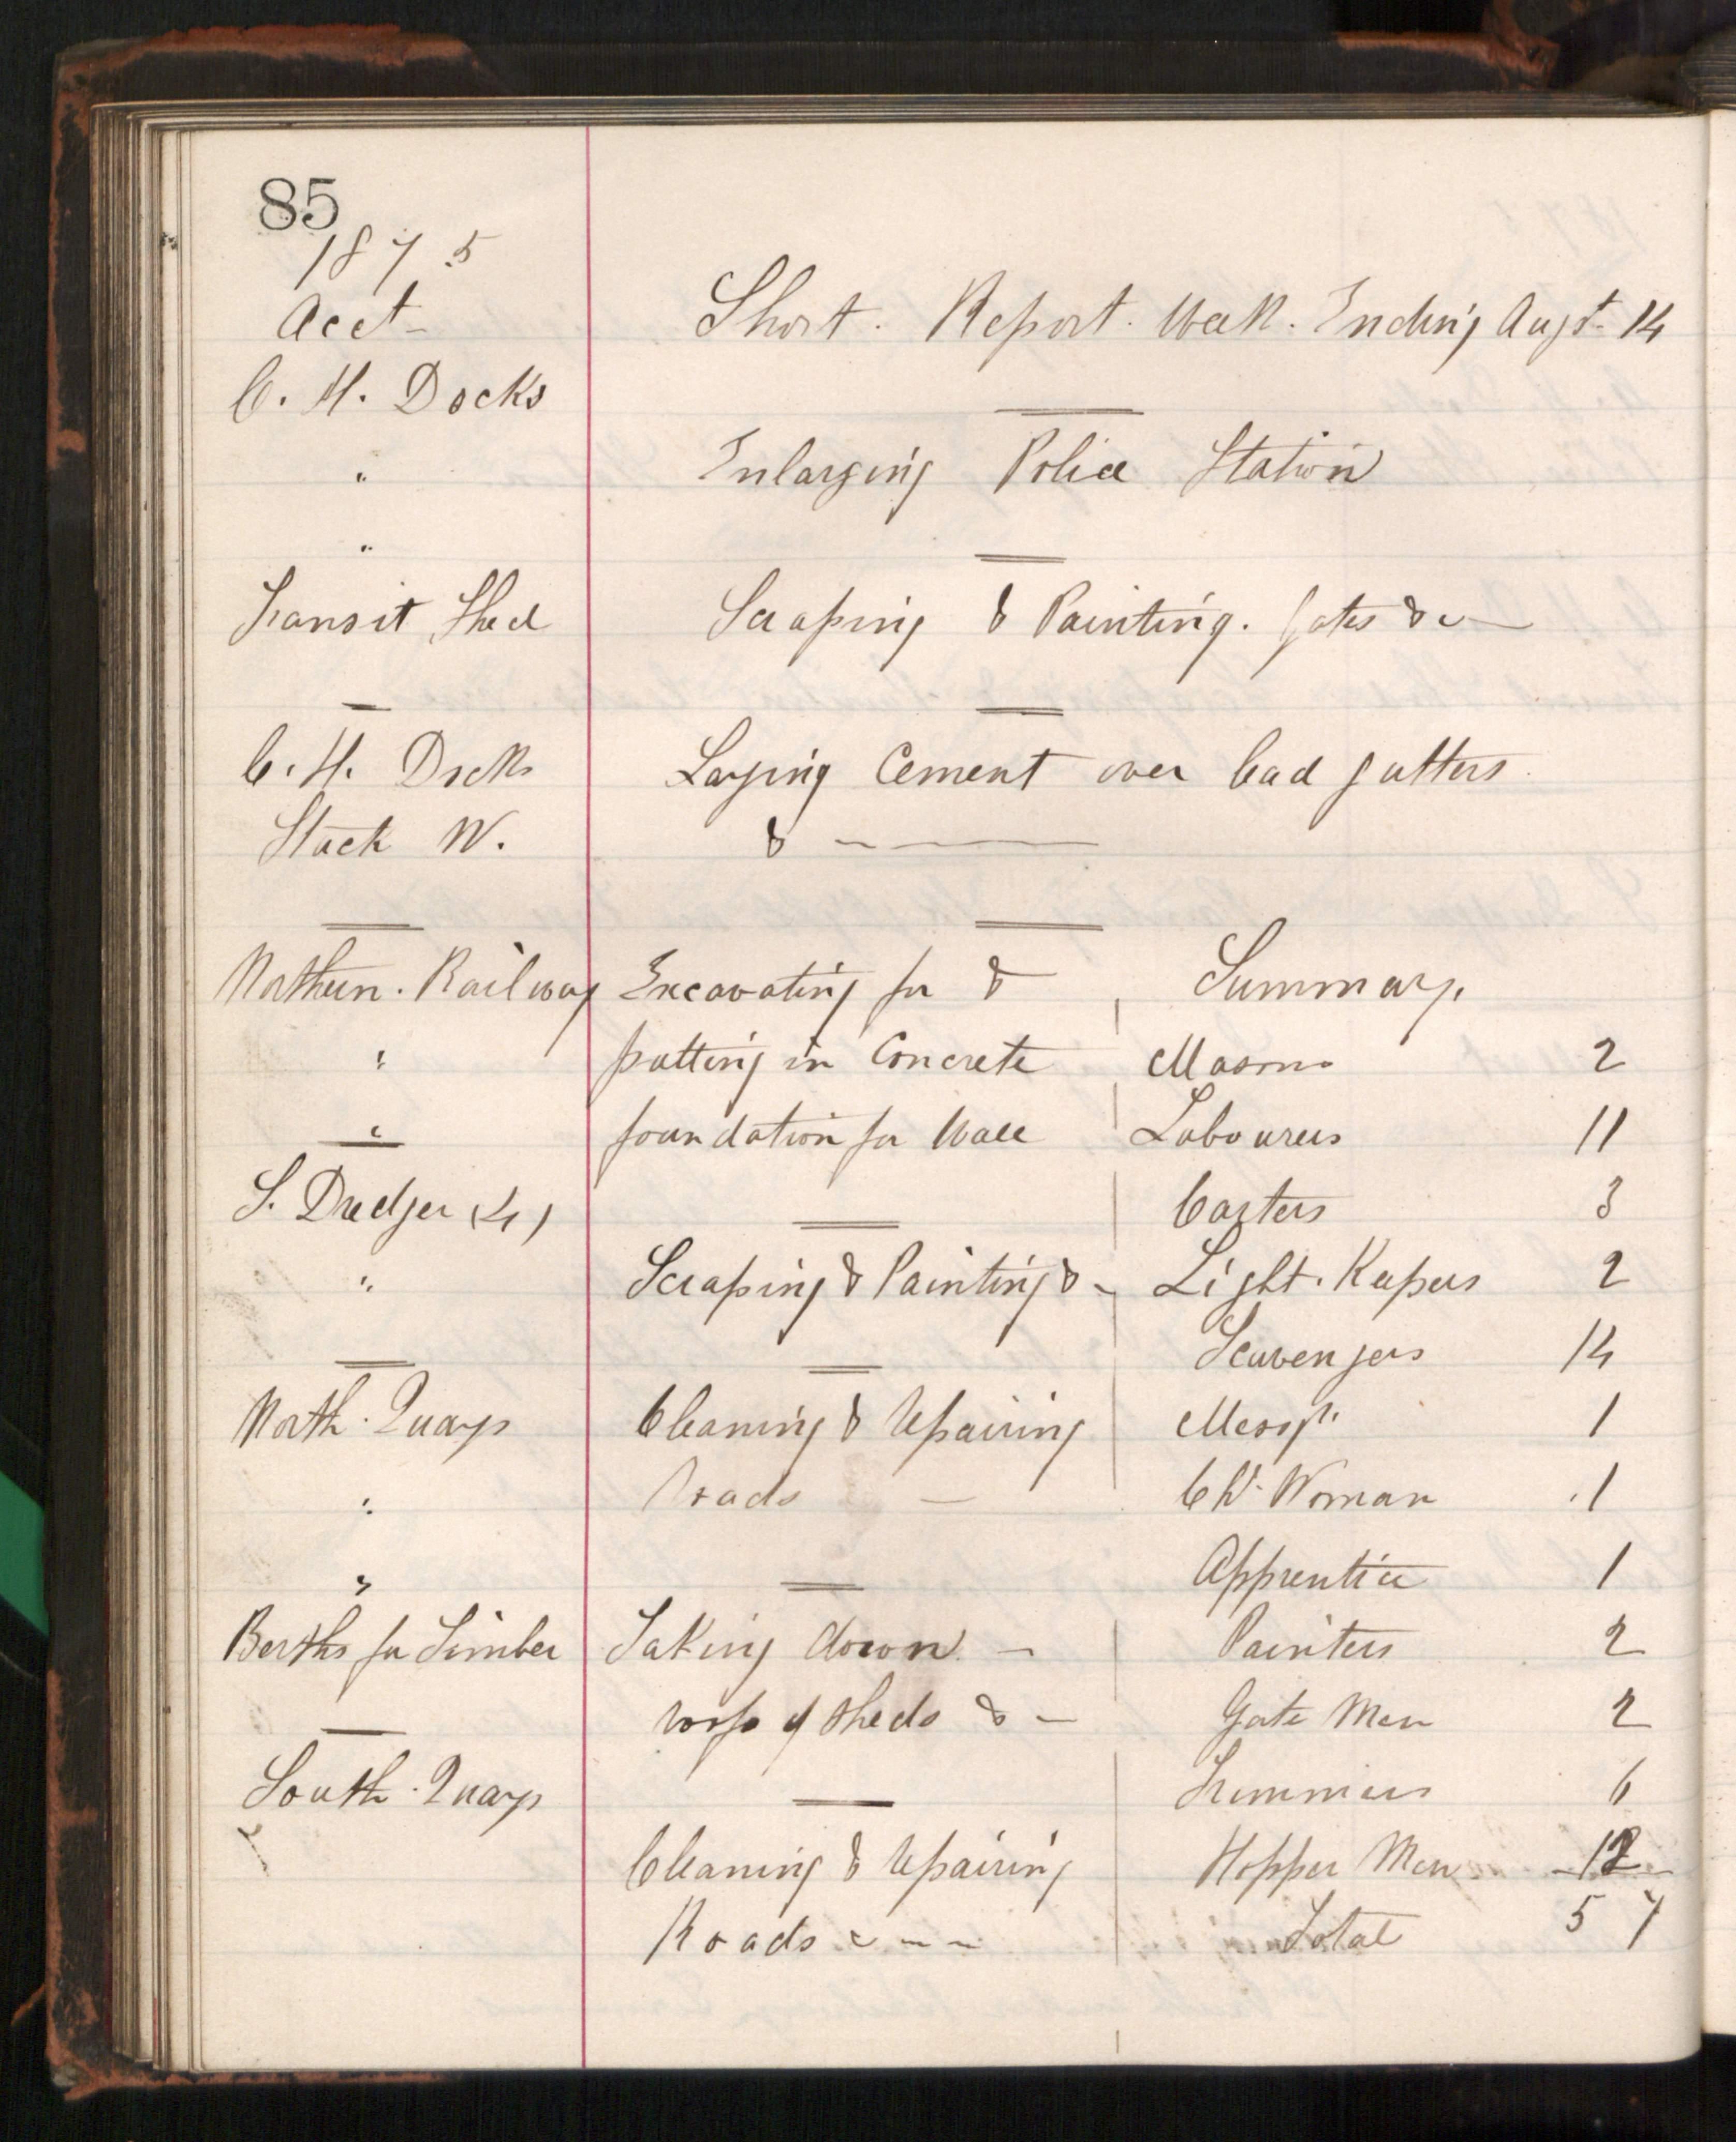 85
1875
Acct
Short. Report. Week. Ending Augt. 14
C. H. Docks
" Enlarging Police Station
"
Transit Shed Scraping & Painting. Gates &c
C. H. Docks Laying Cement over bad gutters.
Stack W. &
Northern. Railway Excavating for & Summary.
" putting in Concrete Masons 2
" foundation for Wall Labourers 11
S. Dredger (4) Carters 3
" Scraping & Painting & Light. Keepers 2
Scavengers 14
North. Quays Cleaning & Repairing Messgr. 1
" Roads Ch. Woman 1
" Apprentice 1
Berths for Timber Taking down Painters 2
roofs of Sheds & Gate Men 2
South. Quays Trimmers 6
Cleaning & Repairing Hopper Men 12
Roads Total 57